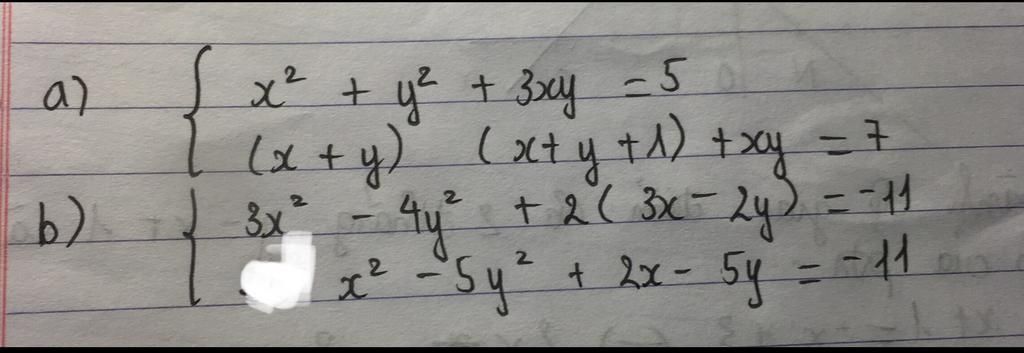 a) { x² + y² + 3xy = 5
(x + y) (x + y + 1) + xy = 7
b) { 3x² - 4y² + 2( 3x - 2y) = -11
x² - 5y² + 2x - 5y = -11